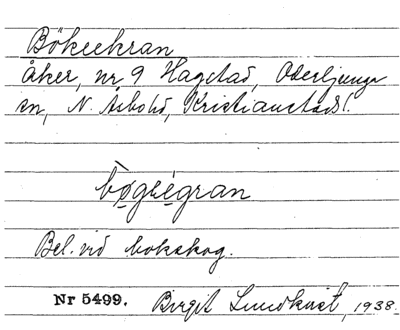 Bökeekran
Åker, nr 9 Hagstad, Oderljunga
sn, N. Åsbohd, Kristianstads l.
bø̀geégran
Bel. vid bokskog.
Nr 5499. Birgit Lundkvist, 1938.